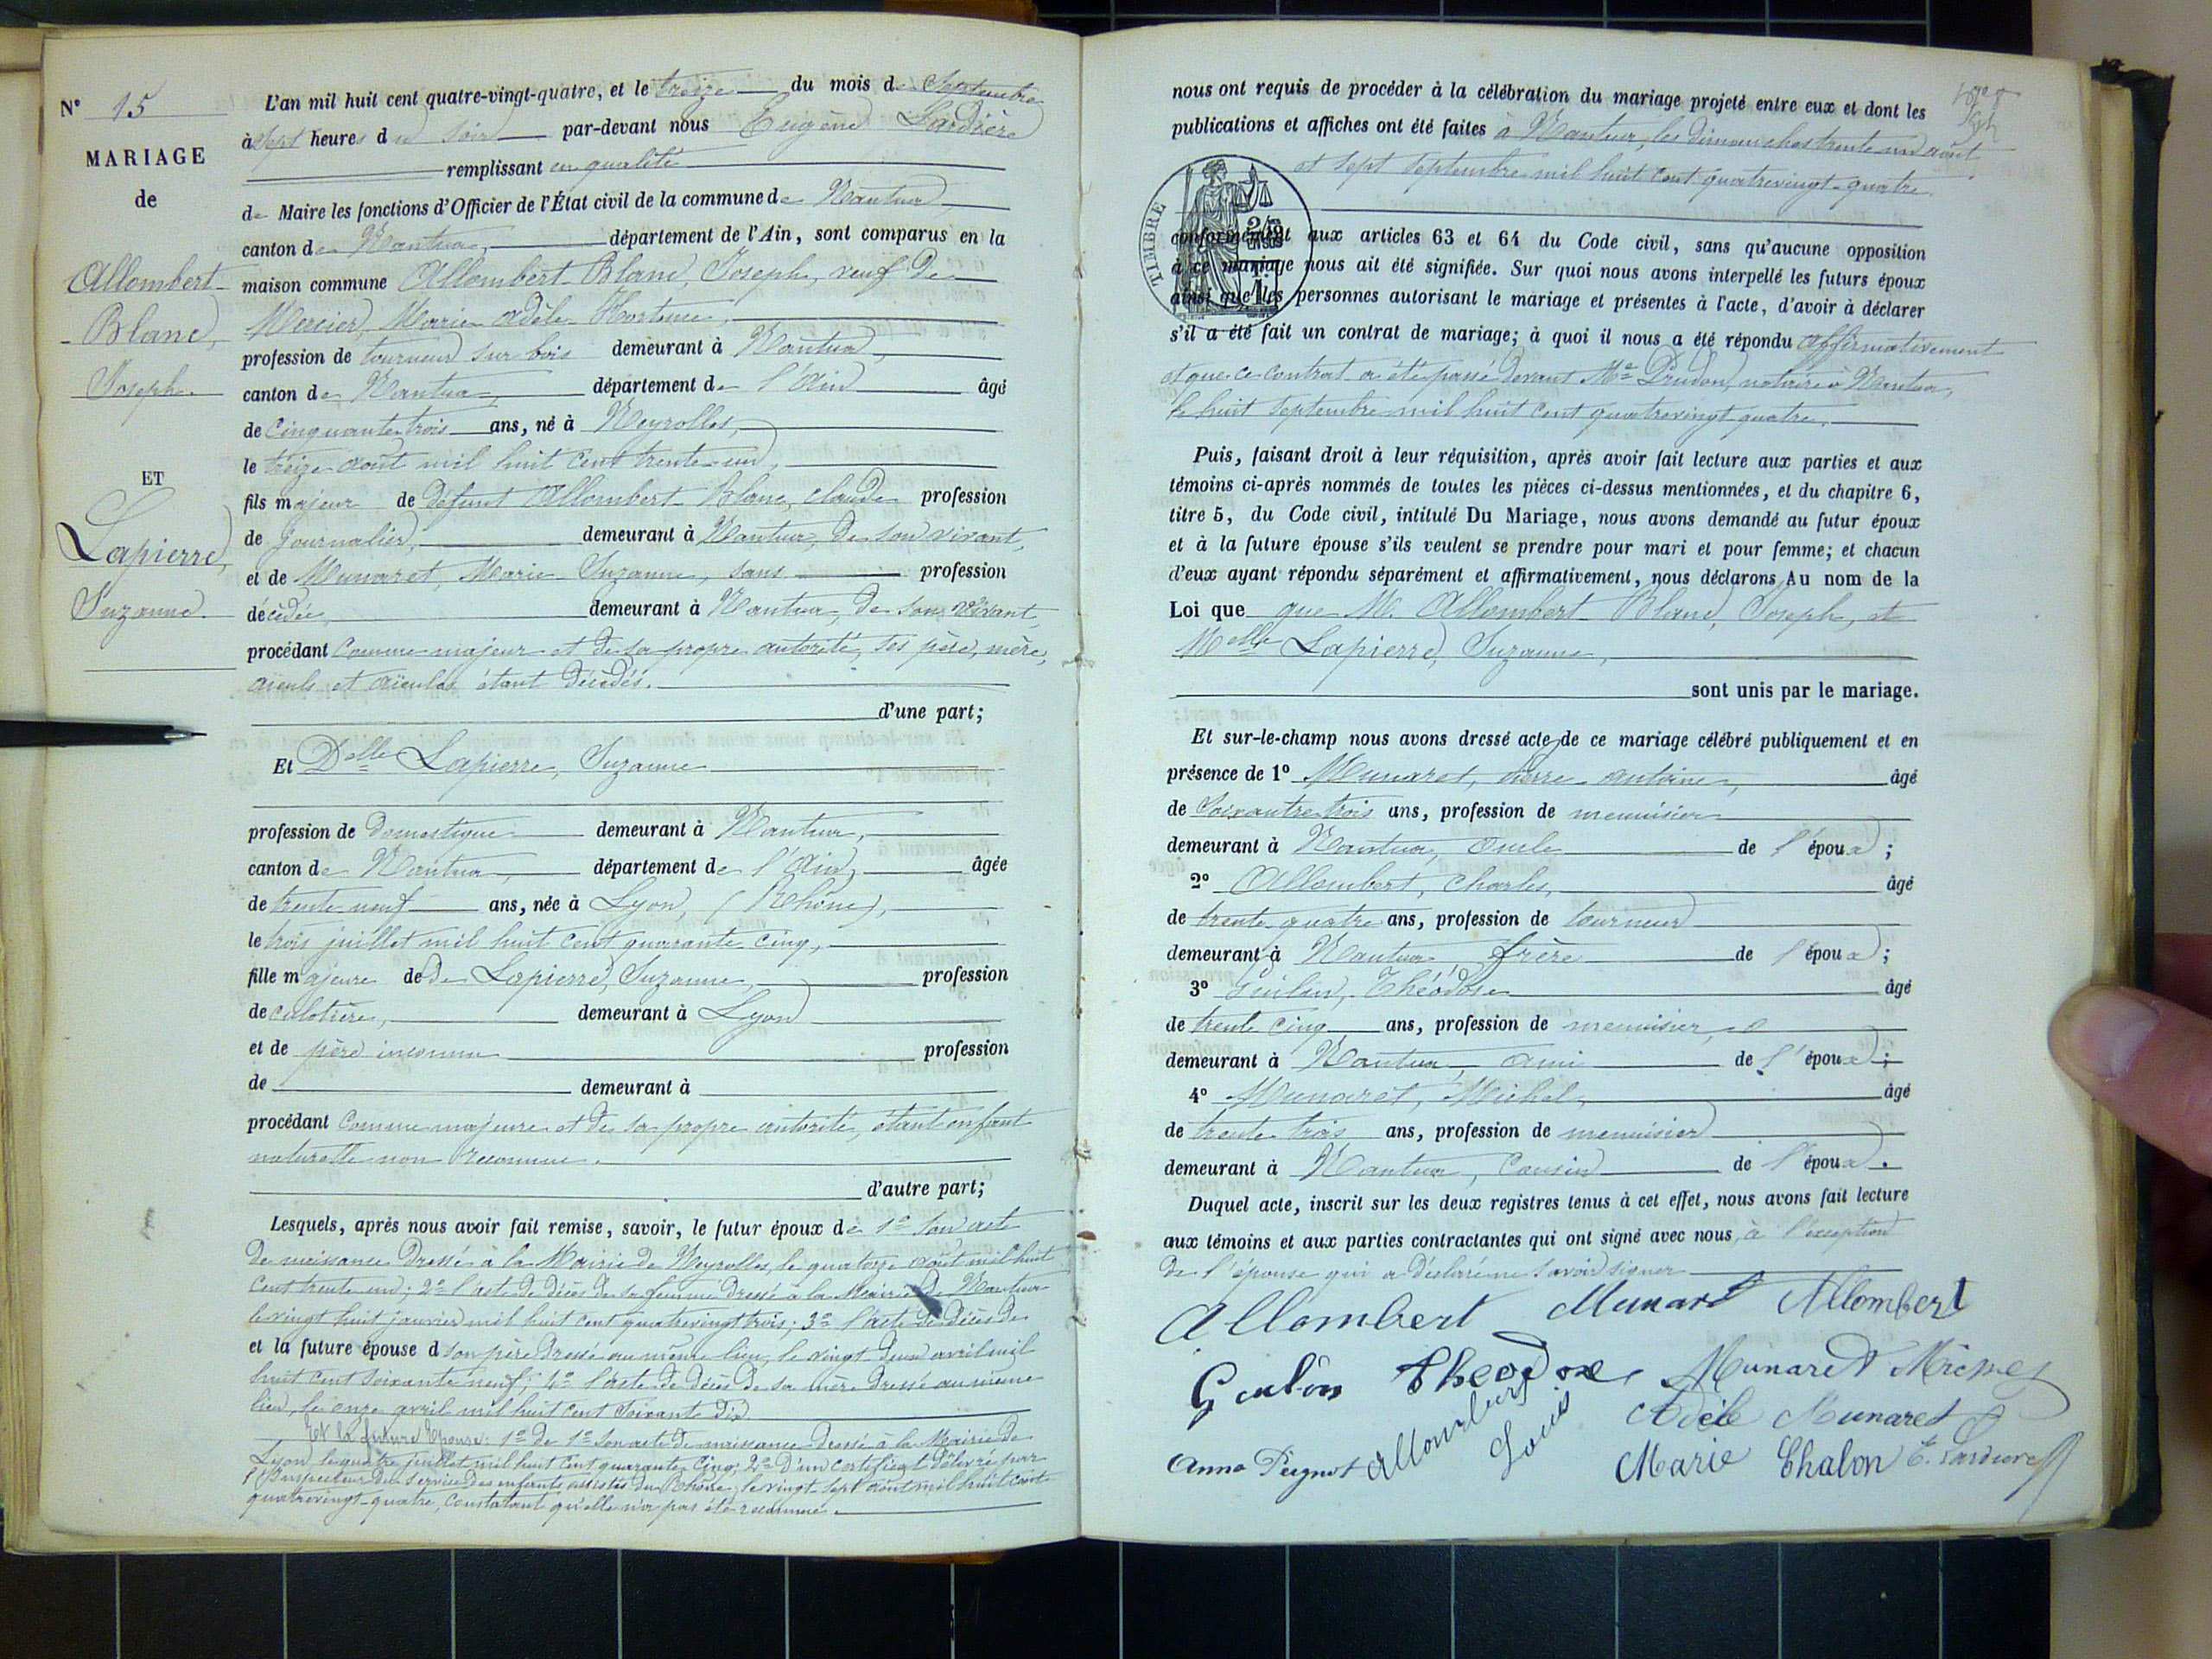 N° 15
MARIAGE
de
Allombert-
Blanc,
Joseph.
ET
Lapierre,
Suzanne.
L'an mil huit cent quatre-vingt-quatre, et le treize du mois de Septembre
à sept heures du soir par-devant nous Eugène Lardière
remplissant en qualité
de Maire les fonctions d'Officier de l'État civil de la commune de Nantua,
canton de Nantua, département de l'Ain, sont comparus en la
maison commune Allombert-Blanc, Joseph, veuf de
Mercier, Marie Adèle Hortense,
profession de tourneur sur bois demeurant à Nantua,
canton de Nantua, département de l'Ain âgé
de cinquante trois ans, né à Neyrolles,
le treize août mil huit cent trente-un,
fils majeur de défunt Allombert-Blanc, Claude profession
de journalier, demeurant à Nantua, de son vivant,
et de Munaret, Marie Suzanne, sans profession
décédée, demeurant à Nantua, de son vivant,
procédant comme majeur et de sa propre autorité, ses père, mère,
aïeuls et aïeules étant décédés.
d'une part;
Et Delle Lapierre, Suzanne
profession de domestique demeurant à Nantua,
canton de Nantua, département de l'Ain, âgée
de trente neuf ans, née à Lyon, (Rhône),
le trois juillet mil huit cent quarante cinq,
fille majeure de de Lapierre, Suzanne, profession
de culotière, demeurant à Lyon
et de père inconnu profession
de demeurant à
procédant comme majeure et de sa propre autorité, étant enfant
naturelle non reconnue.
d'autre part;
Lesquels, après nous avoir fait remise, savoir, le futur époux de 1° son acte
de naissance dressé à la Mairie de Neyrolles, le quatorze août mil huit
cent trente un; 2° l'acte de décès de sa femme dressé à la Mairie de Nantua
le vingt huit janvier mil huit cent quatrevingt trois; 3° l'acte de décès de
et la future épouse d son père dressé au même lieu, le vingt deux avril mil
huit cent soixante neuf; 4° l'acte de décès de sa mère dressé au même
lieu, le onze avril mil huit cent soixante dix
Et la future Epouse: 1° de 1° son acte de naissance dressé à la Mairie de
Lyon le quatre juillet mil huit cent quarante cinq; 2° D'un certificat délivré par
l'Inspecteur du service des enfants assistés du Rhône, le vingt sept août mil huit cent
quatrevingt-quatre, constatant qu'elle n'a pas été reconnue.
nous ont requis de procéder à la célébration du mariage projeté entre eux et dont les
publications et affiches ont été faites à Nantua, les dimanches trente un août
et sept septembre mil huit cent quatrevingt-quatre
TIMBRE
conformément aux articles 63 et 64 du Code civil, sans qu'aucune opposition
à ce mariage nous ait été signifiée. Sur quoi nous avons interpellé les futurs époux
ainsi que les personnes autorisant le mariage et présentes à l'acte, d'avoir à déclarer
s'il a été fait un contrat de mariage; à quoi il nous a été répondu affirmativement
et que ce contrat a été passé devant Me Prudon, notaire à Nantua,
le huit septembre mil huit cent quatrevingt quatre.
Puis, faisant droit à leur réquisition, après avoir fait lecture aux parties et aux
témoins ci-après nommés de toutes les pièces ci-dessus mentionnées, et du chapitre 6,
titre 5, du Code civil, intitulé Du Mariage, nous avons demandé au futur époux
et à la future épouse s'ils veulent se prendre pour mari et pour femme; et chacun
d'eux ayant répondu séparément et affirmativement, nous déclarons Au nom de la
Loi que que M. Allombert-Blanc, Joseph, et
Melle Lapierre, Suzanne,
sont unis par le mariage.
Et sur-le-champ nous avons dressé acte de ce mariage célébré publiquement et en
présence de 1° Munaret, Pierre Antoine, âgé
de soixante trois ans, profession de menuisier
demeurant à Nantua, oncle de l'époux;
2° Allombert, Charles, âgé
de trente quatre ans, profession de tourneur
demeurant à Nantua, frère de l'époux;
3° Théodose âgé
de trente cinq ans, profession de menuisier,
demeurant à Nantua, ami de l'époux;
4° Munaret, Michel, âgé
de trente trois ans, profession de menuisier
demeurant à Nantua, cousin de l'époux.
Duquel acte, inscrit sur les deux registres tenus à cet effet, nous avons fait lecture
aux témoins et aux parties contractantes qui ont signé avec nous, à l'exception
de l'épouse qui a déclaré ne savoir signer
Allombert Munaret Allombert
Theodose Munaret Michel
Allombert Louis Adèle Munaret
Anna Peignot Marie Chalon E. Lardière